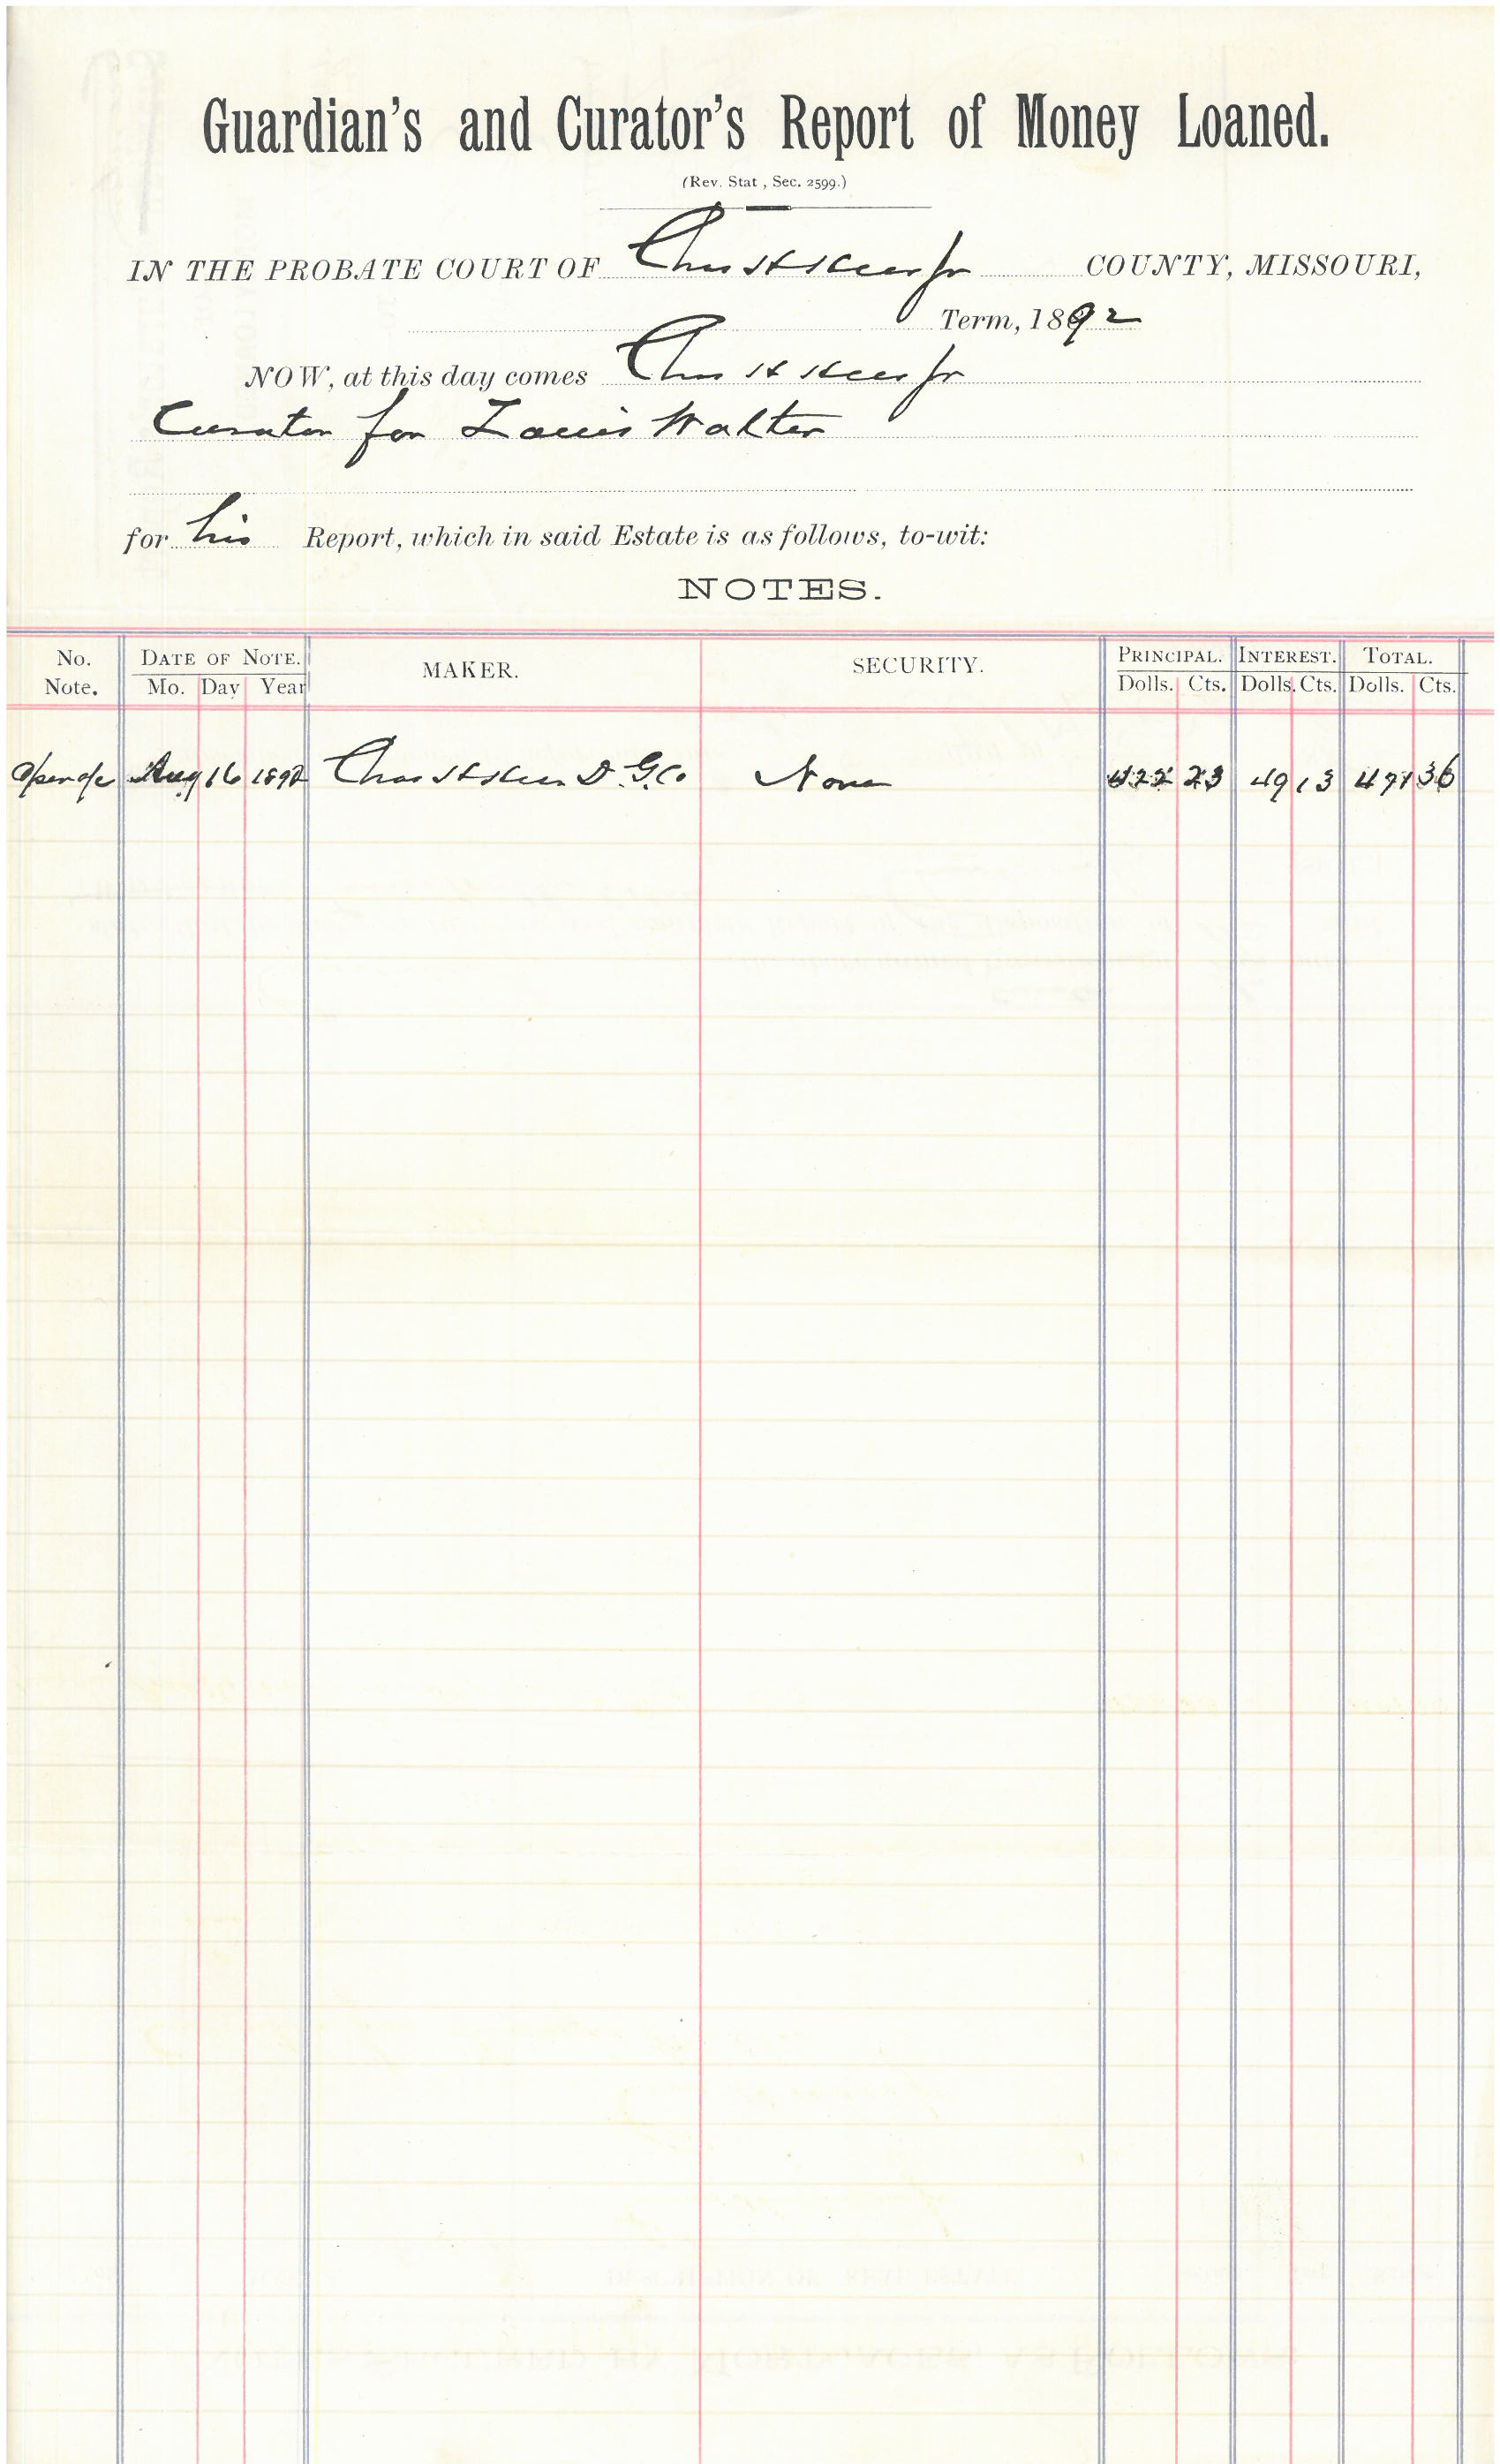 Guardian's and Curator's Report of Money Loaned.
(Rev. Stat , Sec. 2599.)
IN THE PROBATE COURT OF Chas H Kerr jr COUNTY, MISSOURI,
Term, 1892
NOW, at this day comes Chas H Kerr jr
Curator for Louis Walter
for his Report, which in said Estate is as follows, to-wit:
NOTES.
No. Note. DATE OF NOTE. Mo. Day Year MAKER. SECURITY. PRINCIPAL. Dolls. Cts. INTEREST. Dolls. Cts. TOTAL. Dolls. Cts.
Aug 16 1892 Chas D. G. Co None 422 23 49 13 471 36